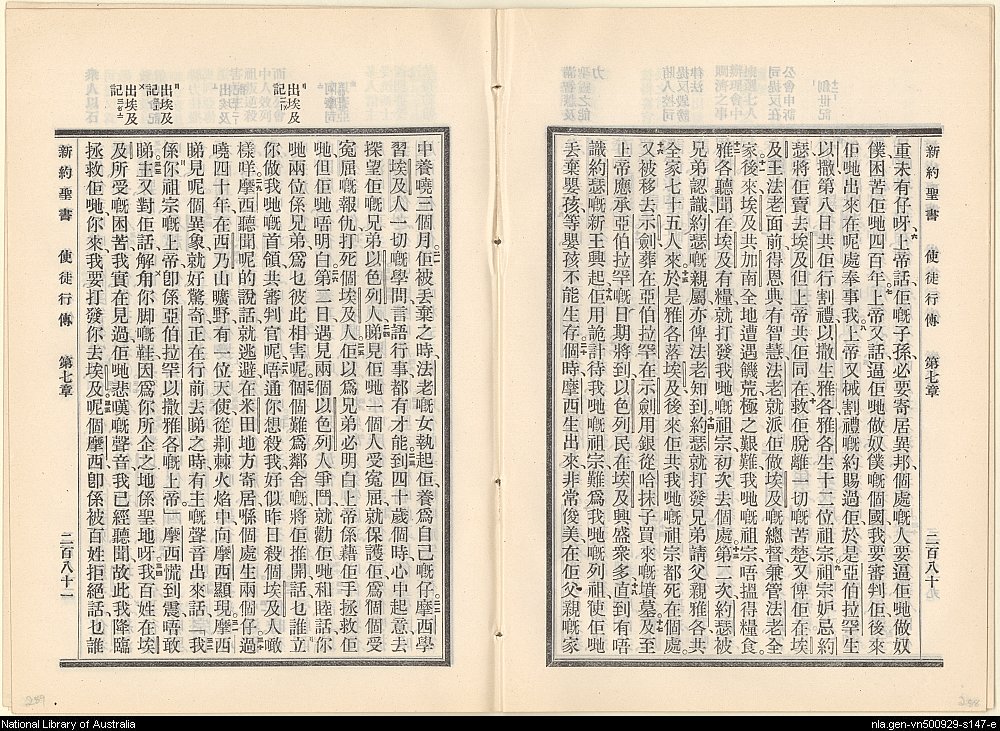 新約聖書 使徒行傳 第七章 二百八十
重未有仔呀上帝話佢嘅子孫必要寄居異邦個處嘅人要逼佢哋做奴
僕困苦佢哋四百年上帝又話逼佢哋做奴僕嘅個國我要審判佢後來
佢哋出來在呢處奉事我上帝又械割禮嘅約賜過佢於是亞伯拉罕生
以撒第八日共佢行割禮以撒生雅各雅各生十二位祖宗祖宗妒忌約
瑟將佢賣去埃及但上帝共佢同在救佢脫離一切嘅苦楚又俾佢在埃
及王法老面前得恩典有智慧法老就派佢做埃及嘅總督兼管法老全
家後來埃及共加南全地遭遇饑荒極之艱難我哋嘅祖宗唔搵得糧食
雅各聽聞在埃及有糧就打發我哋嘅祖宗初次去個處第二次約瑟被
兄弟認識約瑟嘅親屬亦俾法老知到約瑟就打發兄弟請父親雅各共
全家七十五人來於是雅各落埃及後來佢共我哋嘅祖宗都死在個處
又被移去示劍葬在亞伯拉罕在示劍用銀從哈抹子買來嘅墳墓及至
上帝應承亞伯拉罕嘅日期將到以色列民在埃及興盛衆多直到有唔
識約瑟嘅新王興起佢用詭計待我哋嘅祖宗難爲我哋嘅列祖使佢哋
丟棄嬰孩等嬰孩不能生存個時摩西生出來非常俊美在佢父親嘅家
中養嘵三個月佢被丟棄之時法老嘅女執起佢養爲自己嘅仔摩西學
習埃及人一切嘅學問言語行事都有才能到四十歲個時心中起意去
探望佢嘅兄弟以色列人睇見佢哋一個人受寃屈就保護佢爲個個受
寃屈嘅報仇打死個埃及人佢以爲兄弟必明白上帝係藉佢手拯救佢
哋但佢哋唔明白第二日遇見兩個以色列人爭鬥就勸佢哋和睦話你
哋兩位係兄弟爲乜彼此相害呢個個難爲鄰舍嘅將佢推開話乜誰立
你做我哋嘅首領共審判官呢唔通你想殺我好似昨日殺個埃及人噉
樣咩摩西聽聞呢的說話就逃避在米田地方寄居喺個處生兩個仔過
嘵四十年在西乃山曠野有一位天使從荆棘火焰中向摩西顯現摩西
睇見呢個異象就好驚奇正在行前去睇之時有主嘅聲音出來話「我
係你祖宗嘅上帝卽係亞伯拉罕以撒雅各嘅上帝」摩西慌到震唔敢
睇主又對佢話解角你脚嘅鞋因爲你所企之地係聖地呀我百姓在埃
及所受嘅困苦我實在見過佢哋悲嘆嘅聲音我已經聽聞故此我降臨
拯救佢哋你來我要打發你去埃及呢個摩西卽係被百姓拒絕話乜誰
新約聖書 使徒行傳 第七章 二百八十一
出埃及記
出埃及記
出埃及記
National Library of Australia
nla.gen-vn500929-s147-e